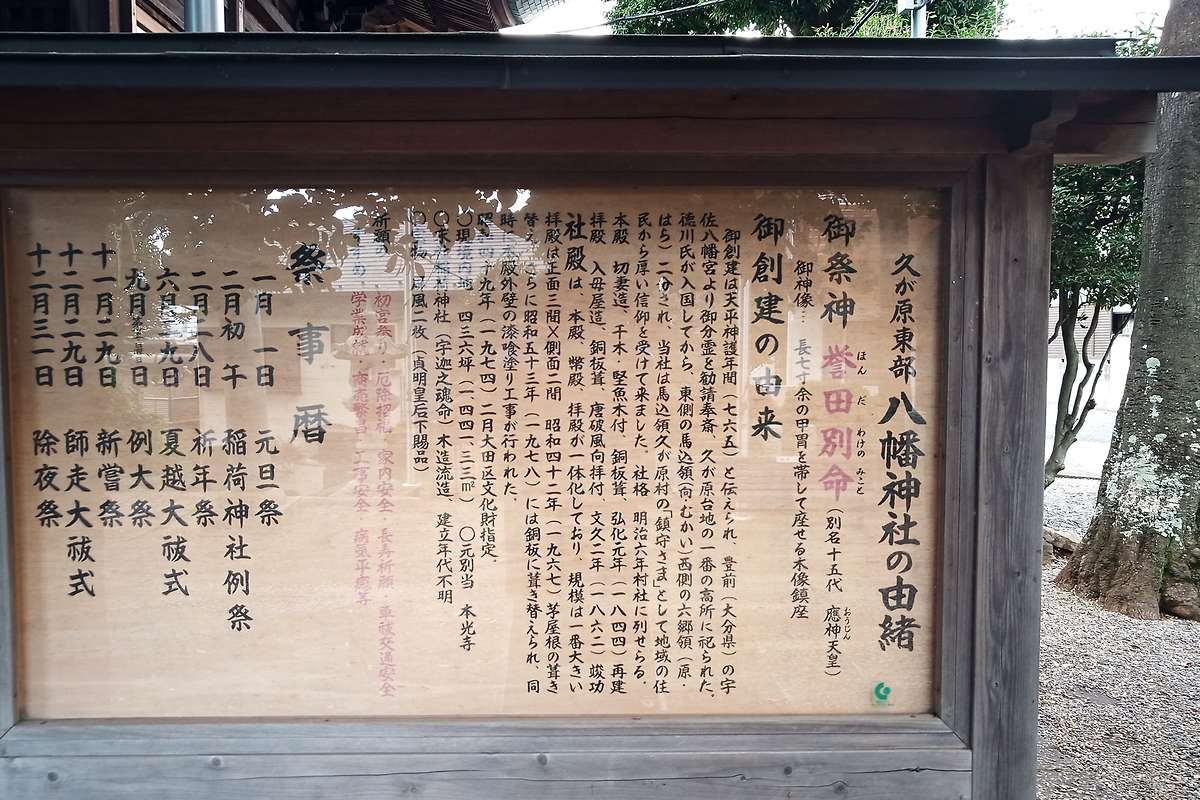 久が原東部 八幡神社の由緒
御祭神 誉田別命 (別名十五代 應神天皇)
ほんだわけのみこと
おうじん
御神像… 長七寸余の甲冑を帯して座せる木像鎮座
御創建の由来
御創建は天平神護年間(七六五)と伝えられ、豊前(大分県)の宇
佐八幡宮より御分霊を勧請奉斎、久が原台地の一番の高所に祀られた。
徳川氏が入国してから、東側の馬込領(向・むかい)西側の六郷領(原・
はら)二分され、当社は馬込領久が原村の「鎮守さま」として地域の住
民から厚い信仰を受けて来ました。社格 明治六年村社に列せらる。
本殿 切妻造、千木・堅魚木付、銅板葺、弘化元年(一八四四)再建
拝殿 入母屋造、銅板葺、唐破風向拝付、文久二年(一八六二)竣功
社殿は、本殿、幣殿、拝殿が一体化しており、規模は一番大きい
拝殿は正面三間×側面二間 昭和四十二年(一九六七)茅屋根の葺き
替え、さらに昭和五十三年(一九七八)には銅板に葺き替えられ、同
時 殿外壁の漆喰塗り工事が行われた。
昭 十九年(一九七四)二月大田区文化財指定。
〇現 内地 四三六坪(一四四一・三三㎡) 〇元別当 本光寺
〇末 神社(宇迦之魂命)木造流造、建立年代不明
〇 物 屏風二枚(貞明皇后下賜品)
祈願 初宮祭り・厄除招札・家内安全・長寿祈願・車祓交通安全
学業成就・商売繁昌・工事安全・病気平癒等
祭事暦
一月 一日 元旦祭
二月初 午 稲荷神社例祭
二月二八日 祈年祭
六月三〇日 夏越大祓式
九月 日 例大祭
十一月二九日 新嘗祭
十二月二九日 師走大祓式
十二月三一日 除夜祭